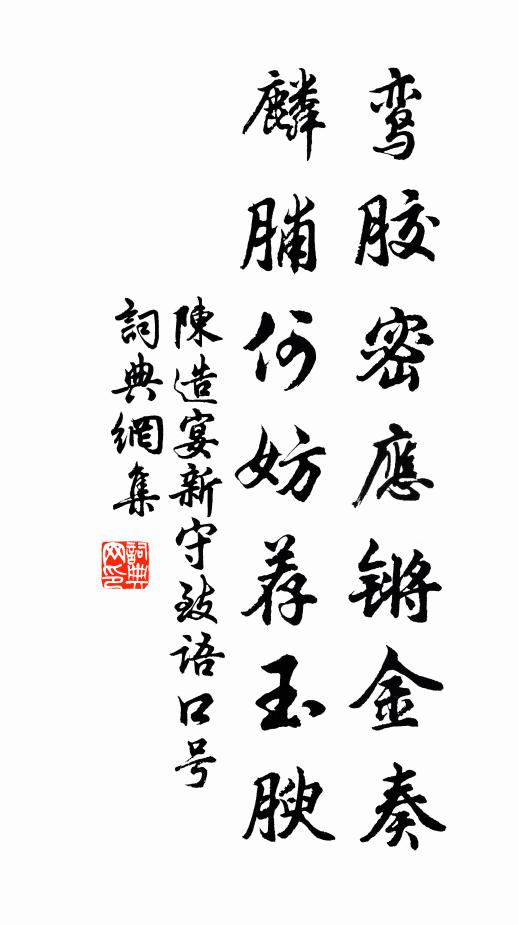 鸾胶密應锵金奏
麟脯何妨荐玉腴
陳造宴新守致语口号
詞典網集
詞典网印